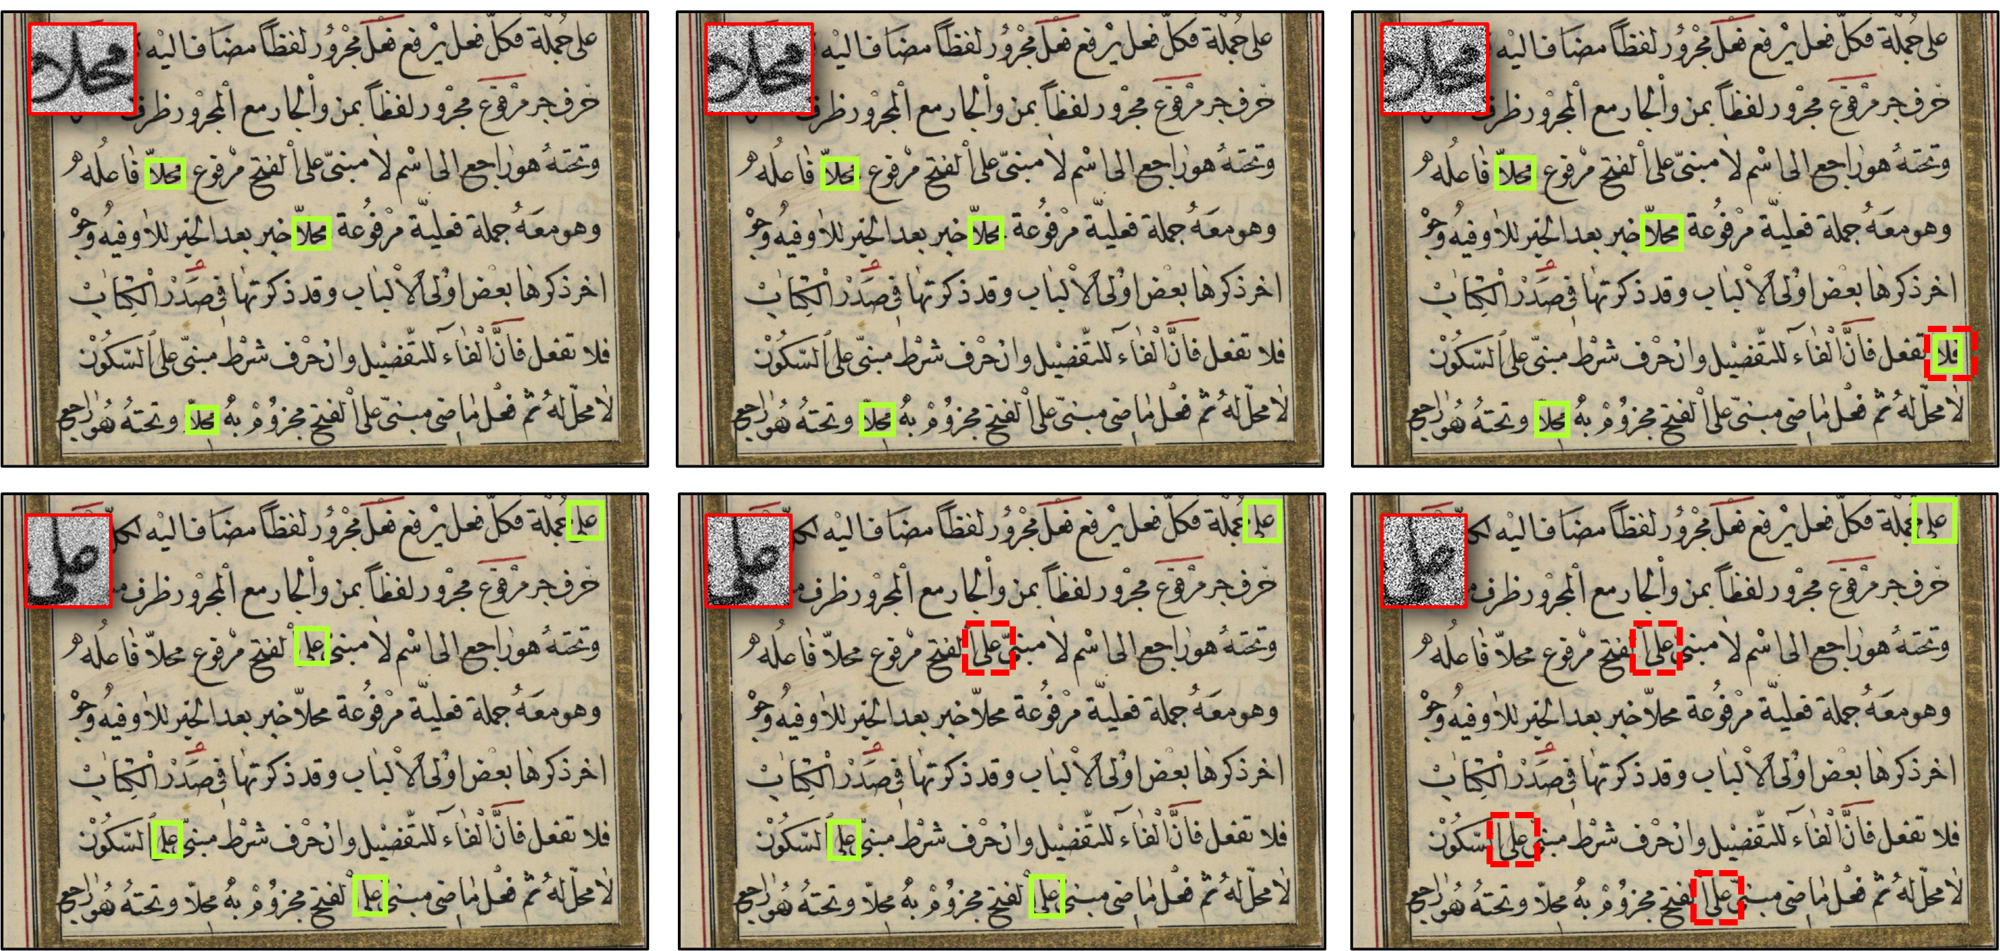 محلا
على جملة فكلّ فعل يرفع فعل مجرور لفظاً مضافا اليه
حرف جر مرفوع مجرور لفظاً بمن والجار مع المجرور ظرف
وتحته هو راجع الى اسم لا مبنىّ على الفتح مرفوع محلاّ فاعله
وهو معه جملة فعليّة مرفوعة محلاّ خبر بعد الخبر للا وفيه
اخر ذكرها بعض اولى الالباب وقد ذكرتها فى صدر الكتاب
فلا تفعل فانّ الفاء للتفضيل وان حرف شرط مبنىّ على السكون
لا محلّ له ثم فعل ماض مبنىّ على الفتح مجزوم به محلاّ وتحته هو راجع
محلا
على جملة فكلّ فعل يرفع فعل مجرور لفظاً مضافا اليه
حرف جر مرفوع مجرور لفظاً بمن والجار مع المجرور ظرف
وتحته هو راجع الى اسم لا مبنىّ على الفتح مرفوع محلاّ فاعله
وهو معه جملة فعليّة مرفوعة محلاّ خبر بعد الخبر للا وفيه
اخر ذكرها بعض اولى الالباب وقد ذكرتها فى صدر الكتاب
فلا تفعل فانّ الفاء للتفضيل وان حرف شرط مبنىّ على السكون
لا محلّ له ثم فعل ماض مبنىّ على الفتح مجزوم به محلاّ وتحته هو راجع
محلا
على جملة فكلّ فعل يرفع فعل مجرور لفظاً مضافا اليه
حرف جر مرفوع مجرور لفظاً بمن والجار مع المجرور ظرف
وتحته هو راجع الى اسم لا مبنىّ على الفتح مرفوع محلاّ فاعله
وهو معه جملة فعليّة مرفوعة محلاّ خبر بعد الخبر للا وفيه
اخر ذكرها بعض اولى الالباب وقد ذكرتها فى صدر الكتاب
فلا تفعل فانّ الفاء للتفضيل وان حرف شرط مبنىّ على السكون
لا محلّ له ثم فعل ماض مبنىّ على الفتح مجزوم به محلاّ وتحته هو راجع
على
على جملة فكلّ فعل يرفع فعل مجرور لفظاً مضافا اليه
حرف جر مرفوع مجرور لفظاً بمن والجار مع المجرور ظرف
وتحته هو راجع الى اسم لا مبنىّ على الفتح مرفوع محلاّ فاعله
وهو معه جملة فعليّة مرفوعة محلاّ خبر بعد الخبر للا وفيه
اخر ذكرها بعض اولى الالباب وقد ذكرتها فى صدر الكتاب
فلا تفعل فانّ الفاء للتفضيل وان حرف شرط مبنىّ على السكون
لا محلّ له ثم فعل ماض مبنىّ على الفتح مجزوم به محلاّ وتحته هو راجع
على
على جملة فكلّ فعل يرفع فعل مجرور لفظاً مضافا اليه
حرف جر مرفوع مجرور لفظاً بمن والجار مع المجرور ظرف
وتحته هو راجع الى اسم لا مبنىّ على الفتح مرفوع محلاّ فاعله
وهو معه جملة فعليّة مرفوعة محلاّ خبر بعد الخبر للا وفيه
اخر ذكرها بعض اولى الالباب وقد ذكرتها فى صدر الكتاب
فلا تفعل فانّ الفاء للتفضيل وان حرف شرط مبنىّ على السكون
لا محلّ له ثم فعل ماض مبنىّ على الفتح مجزوم به محلاّ وتحته هو راجع
على
على جملة فكلّ فعل يرفع فعل مجرور لفظاً مضافا اليه
حرف جر مرفوع مجرور لفظاً بمن والجار مع المجرور ظرف
وتحته هو راجع الى اسم لا مبنىّ على الفتح مرفوع محلاّ فاعله
وهو معه جملة فعليّة مرفوعة محلاّ خبر بعد الخبر للا وفيه
اخر ذكرها بعض اولى الالباب وقد ذكرتها فى صدر الكتاب
فلا تفعل فانّ الفاء للتفضيل وان حرف شرط مبنىّ على السكون
لا محلّ له ثم فعل ماض مبنىّ على الفتح مجزوم به محلاّ وتحته هو راجع